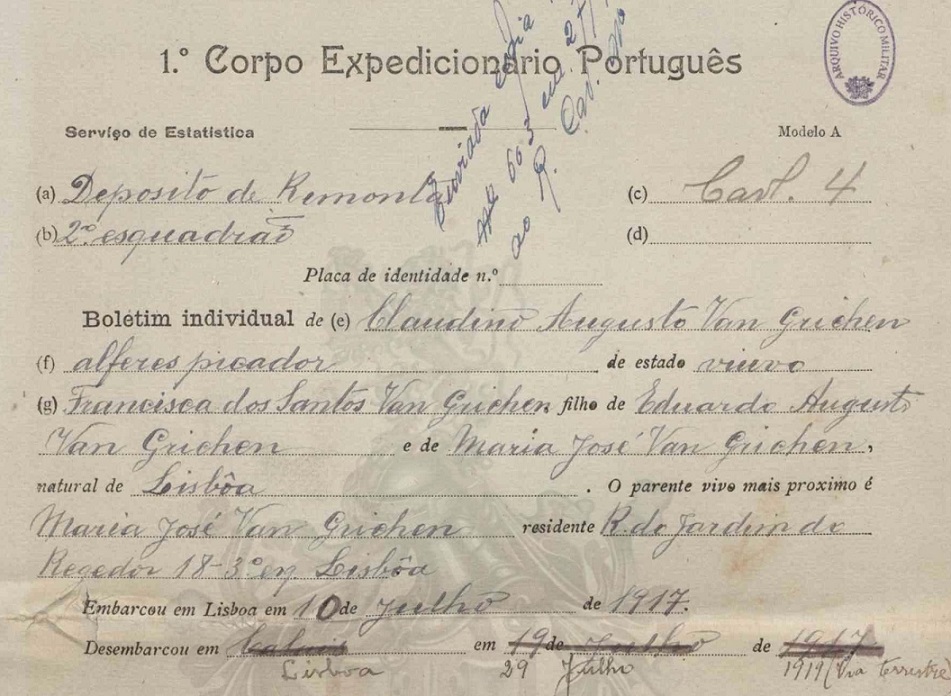 1.º Corpo Expedicionário Português
ARQUIVO HISTÓRICO MILITAR
Enviada copia
663 em
ao R. Cav.
Serviço de Estatística
Modelo A
(a) Deposito de Remonta (c) Cavl. 4
(b) 2º esquadrão (d)
Placa de identidade n.º
Boletim individual de (e) Claudino Augusto Van Grichen
(f) alferes picador de estado viuvo
(g) Francisca dos Santos Van Grichen filho de Eduardo Augusto
Van Grichen e de Maria José Van Grichen,
natural de Lisbôa. O parente vivo mais proximo é
Maria José Van Grichen residente R. do Jardim do
Regedor 18-3º en Lisbôa
Embarcou em Lisboa em 10 de Julho de 1917.
Desembarcou em Calais em 19 de Julho de 1917
Lisboa 29 Julho 1919 (Via terrestre)